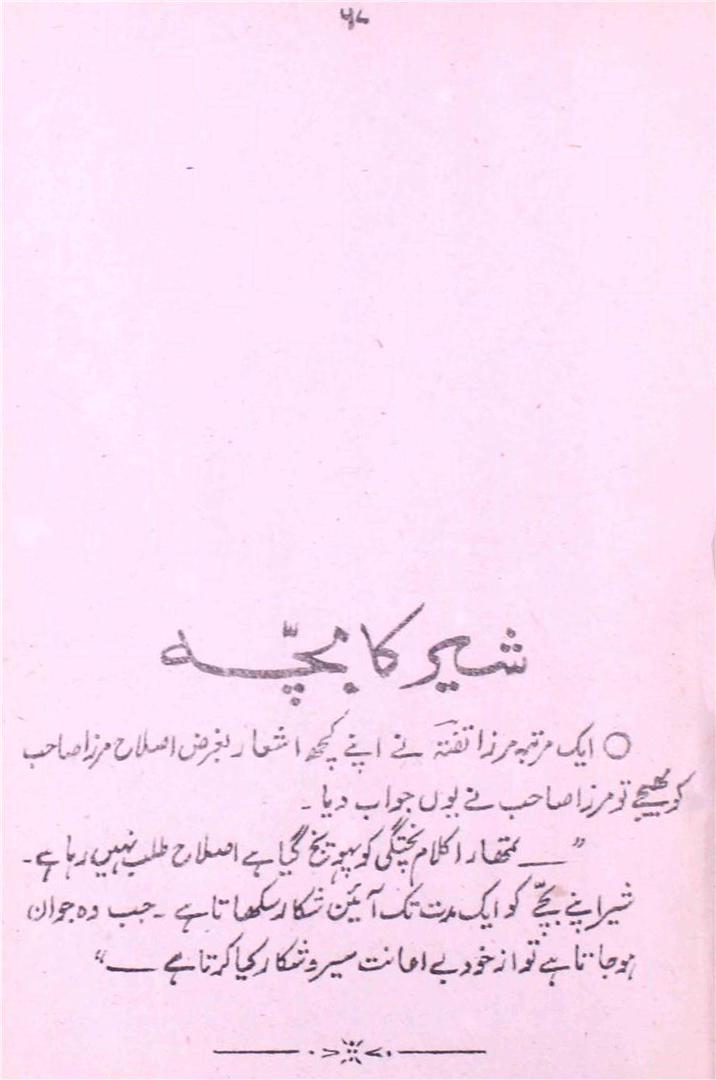 ۵۸
شیر کا بچّہ
○ ایک مرتبہ مرزا تفتہؔ نے اپنے کچھ اشعار بغرض اصلاح مرزا صاحب
کو بھیجے تو مرزا صاحب نے یوں جواب دیا ۔
”— تمھارا کلام پختگی کو پہونچ گیا ہے اصلاح طلب نہیں رہا ہے۔
شیر اپنے بچّے کو ایک مدت تک آئین شکار سکھاتا ہے ۔ جب وہ جوان
ہو جاتا ہے تو از خود بے اعانت سیر و شکار کیا کرتا ہے —“